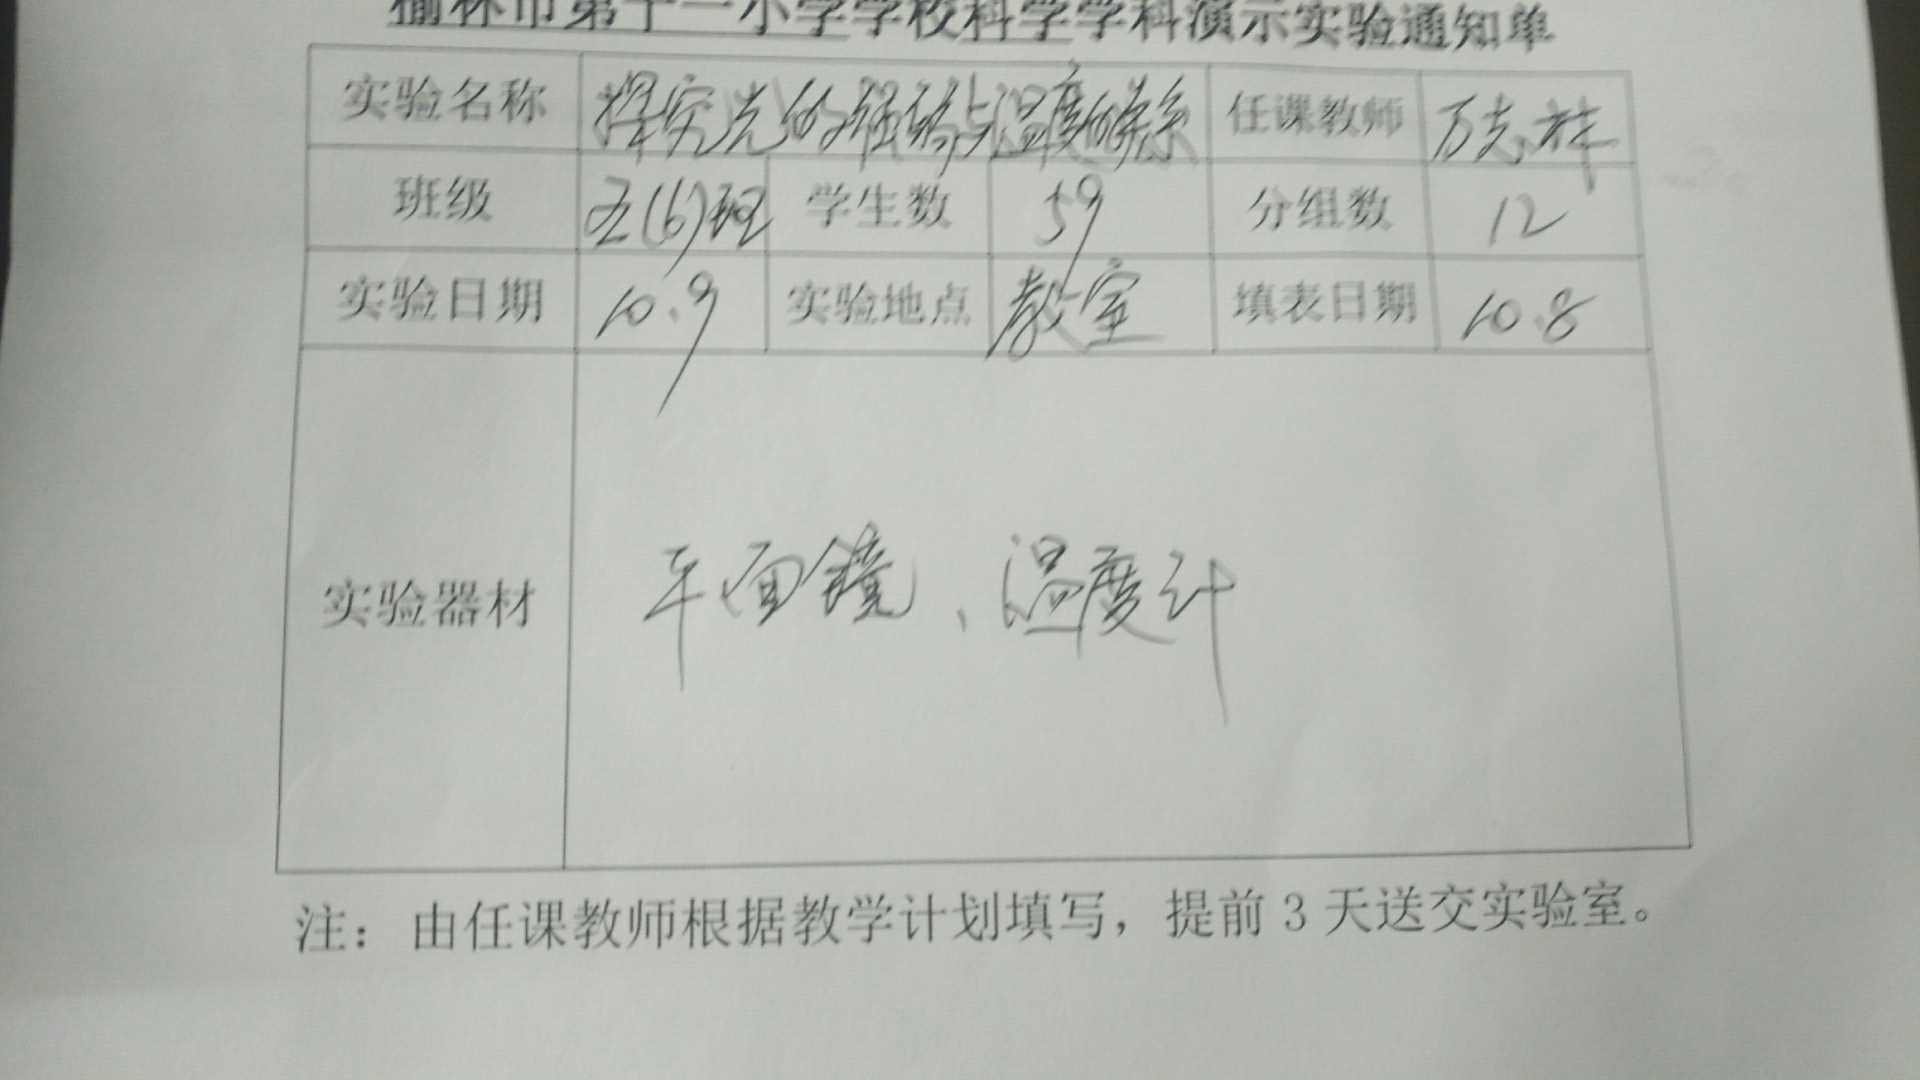 榆林市第十一小学学校科学学科演示实验通知单
实验名称 探究光的强弱与温度的关系 任课教师 万志祥
班级 五(6)班 学生数 59 分组数 12
实验日期 10.9 实验地点 教室 填表日期 10.8
实验器材 平面镜、温度计
注：由任课教师根据教学计划填写，提前3天送交实验室。